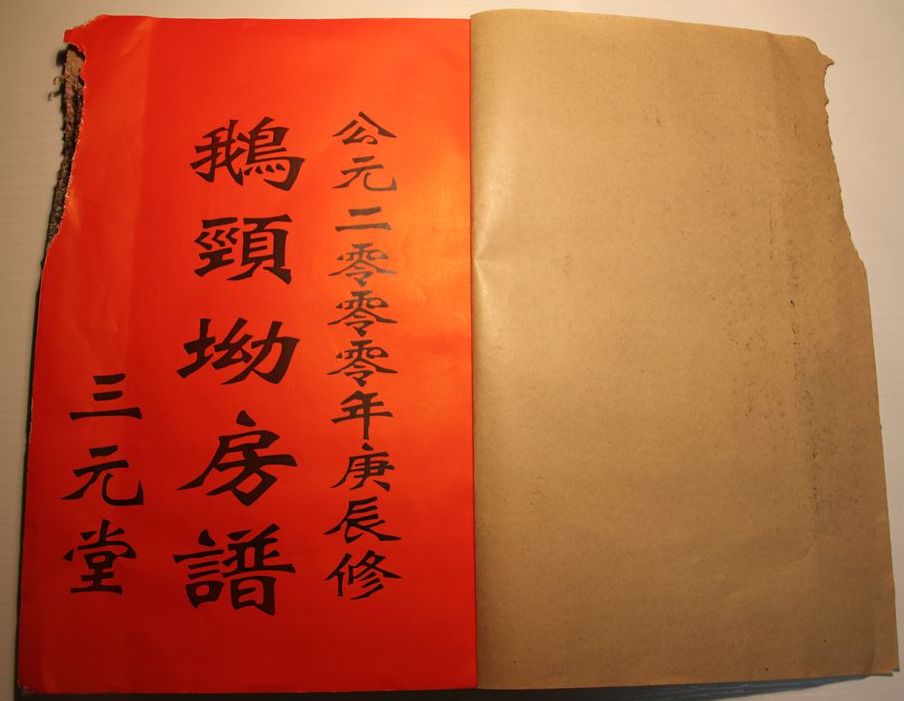 公元二零零零年庚辰修
鵝頸坳房譜
三元堂